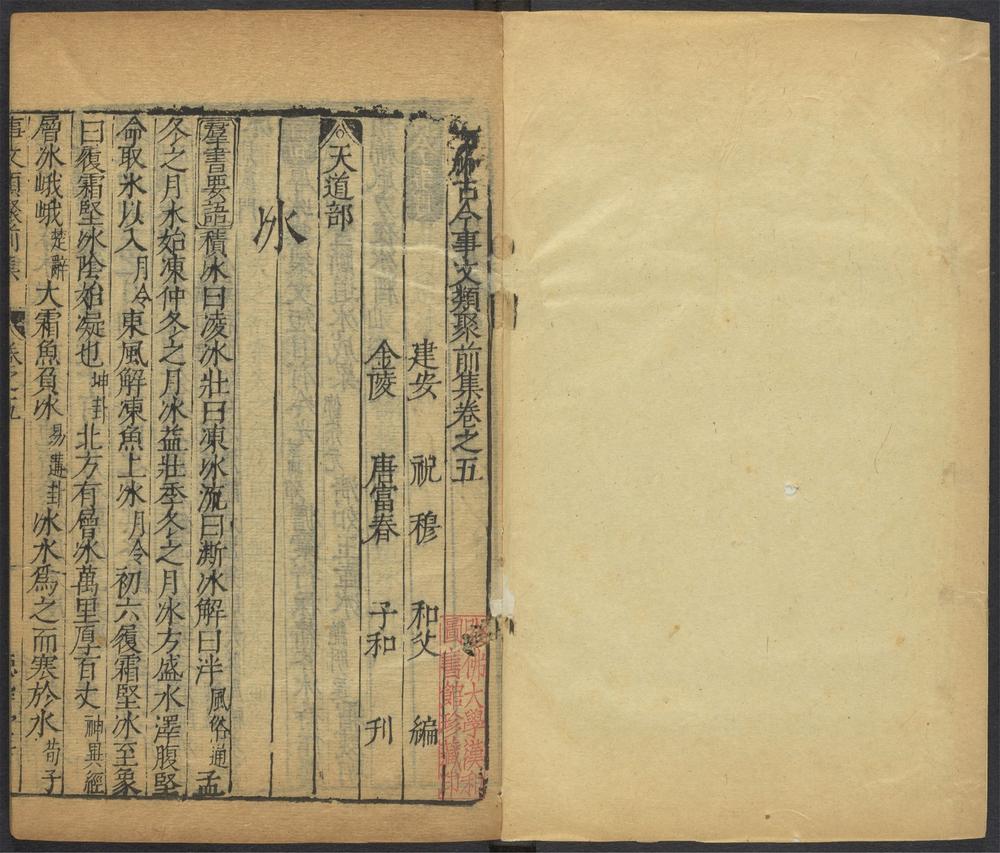 古今事文類聚前集卷之五
建安 祝穆 和父 編
金陵 唐富春 子和 刊
天道部
冰
羣書要語積冰曰凌冰壯曰凍冰流曰澌冰解曰泮風俗通孟
冬之月水始凍仲冬之月冰益壯季冬之月冰方盛水澤腹堅
命取氷以入月令東風解凍魚上冰月令初六履霜堅冰至象
曰履霜堅冰陰始凝也坤卦北方有曾冰萬里厚百丈神異經
層冰峨峨楚辭大霜魚負冰易遘卦冰水為之而寒於水荀子
事文類聚前集 卷之五
佛大學漢和
圖書館珍藏印